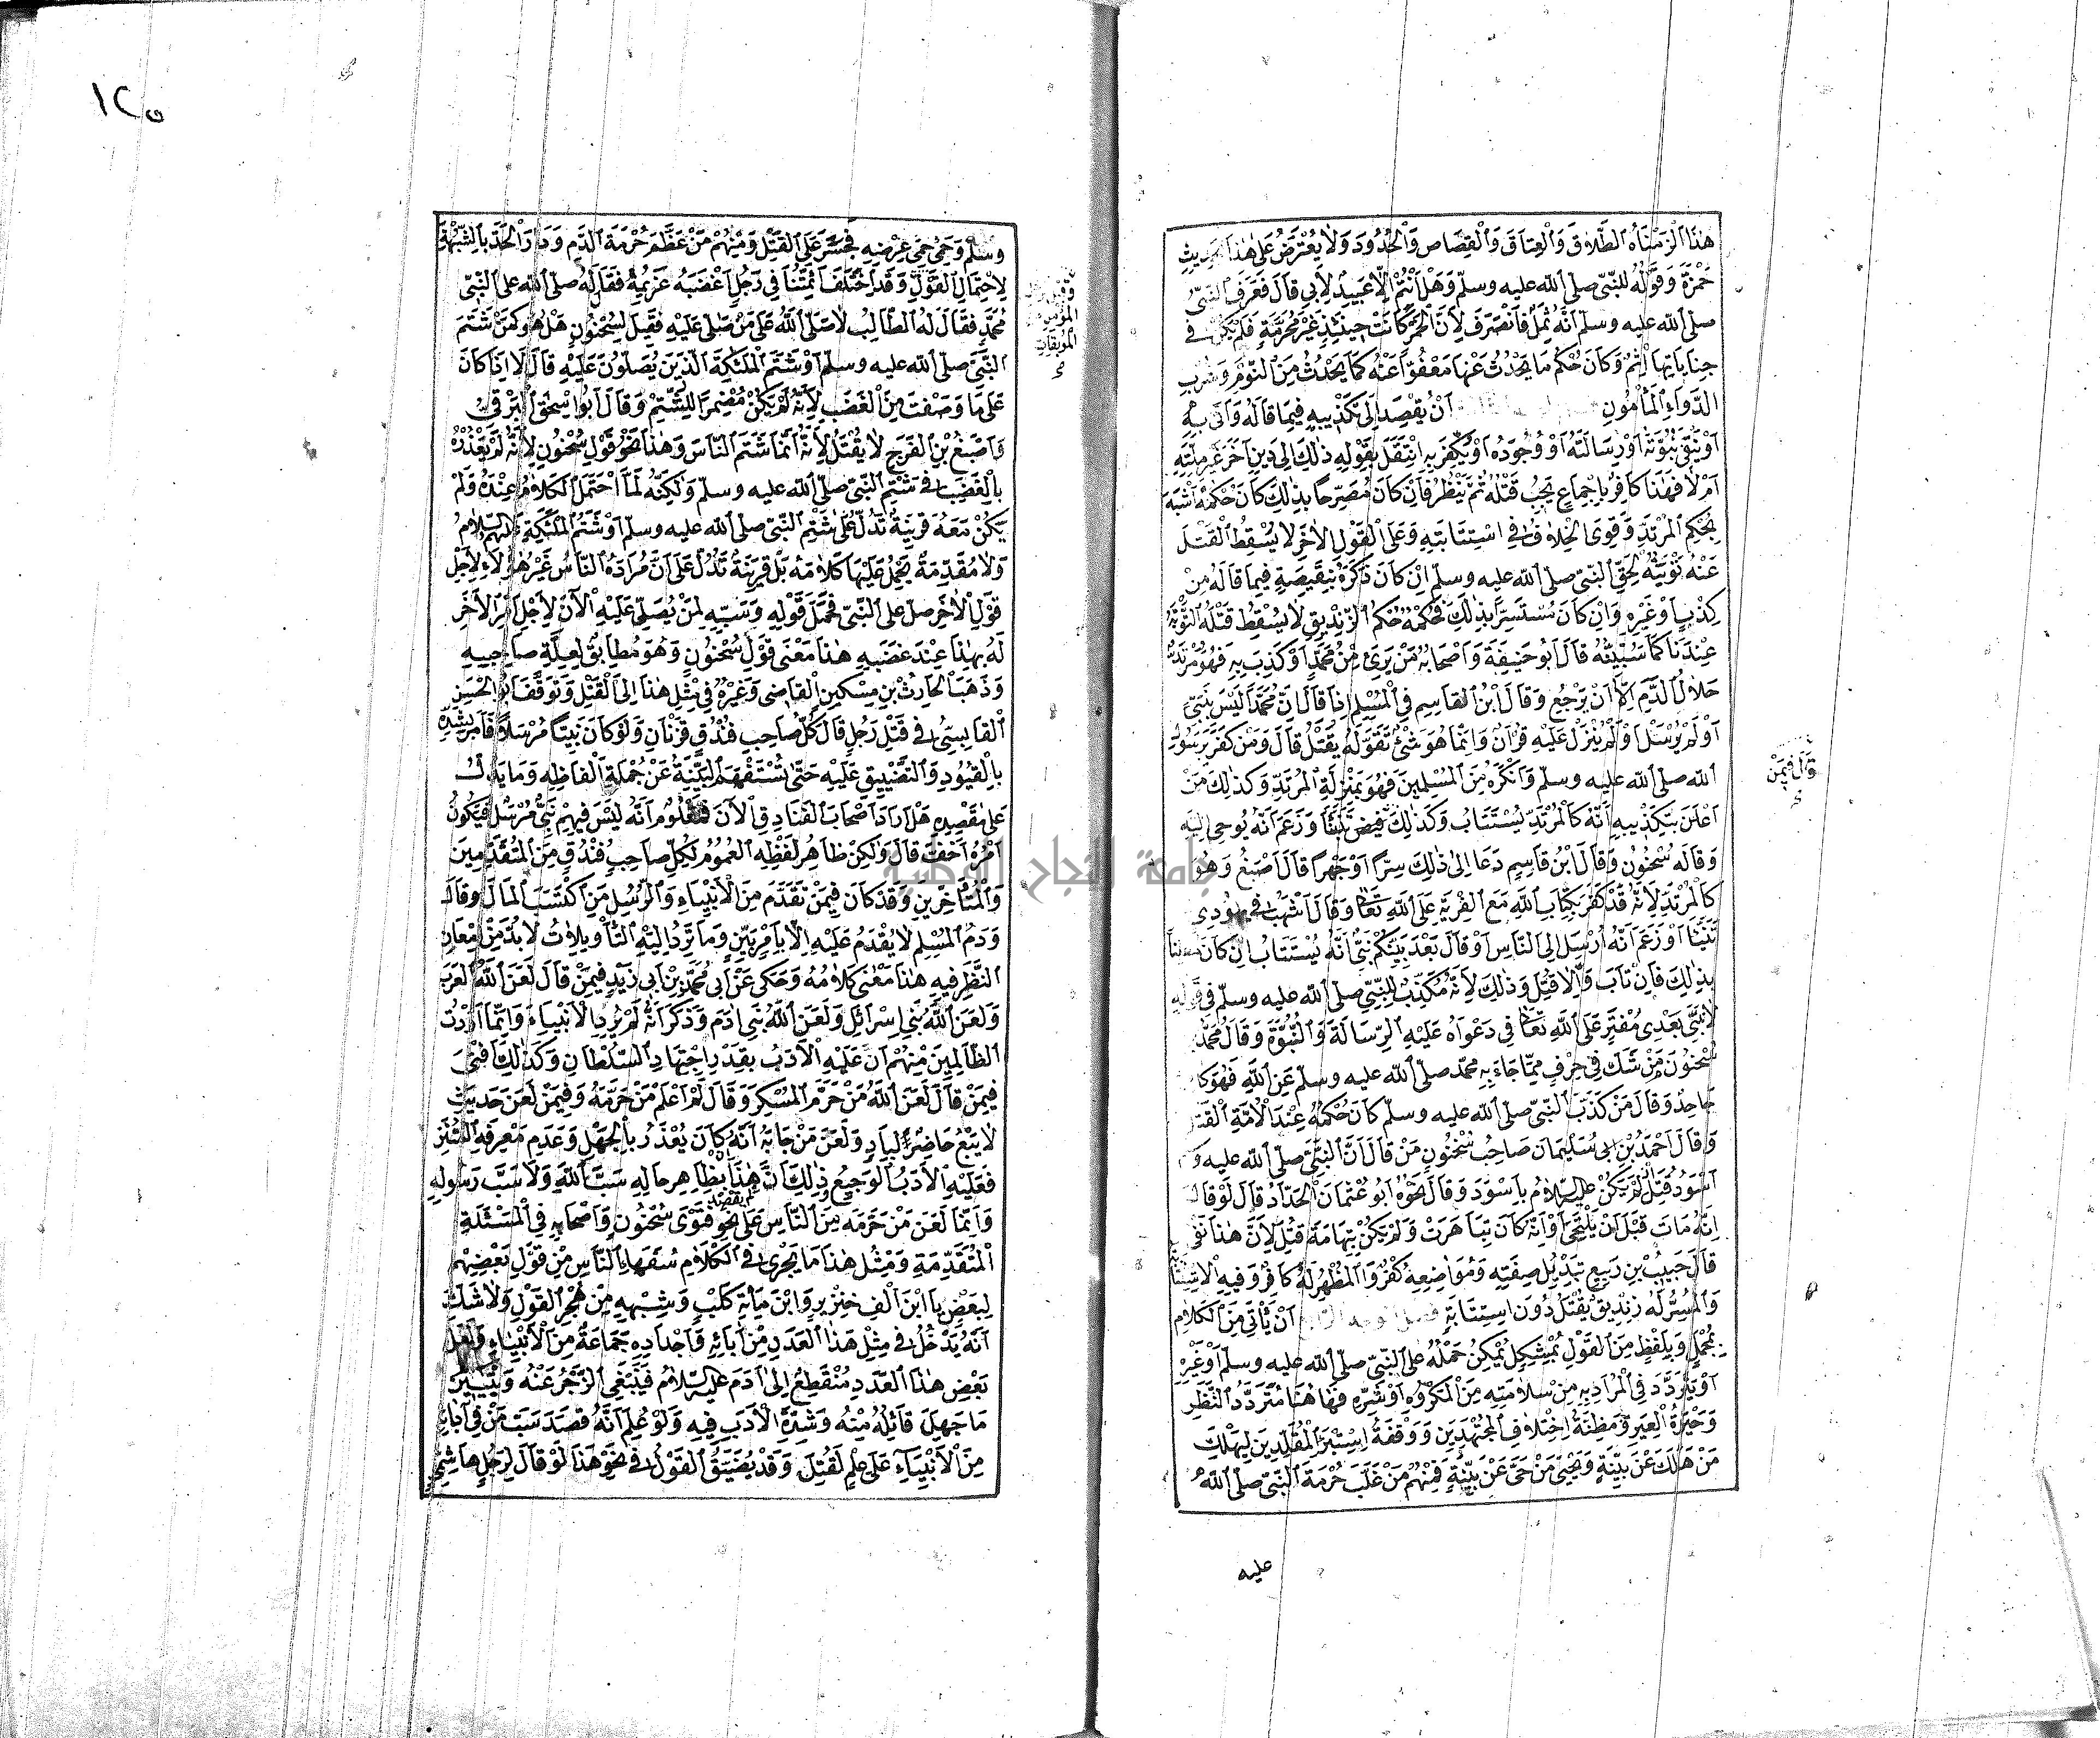 هٰذَا اَلْزَمْنَاهُ الطَّلَاقَ وَالْعِتَاقَ وَالْقِصَاصَ وَالْحُدُودَ وَلَا يُعْتَرَضُ عَلٰى هٰذَا بِحَدِيثِ
حَمْزَةَ وَقَوْلُهُ لِلنَّبِيِّ صلى الله عليه وسلم وَهَلْ اَنْتُمْ اِلَّا عَبِيدٌ لِاَبِي قَالَ فَعَرَفَ النَّبِيُّ
صلى الله عليه وسلم اَنَّهُ ثَمِلٌ فَانْصَرَفَ لِاَنَّ الْخَمْرَ كَانَتْ حِينَئِذٍ غَيْرَ مُحَرَّمَةٍ فَلَمْ يَكُنْ فى
جِنَايَاتِهَا اِثْمٌ وَكَانَ حُكْمُ مَا يَحْدُثُ عَنْهَا مَعْفُوًّا عَنْهُ كَمَا يَحْدُثُ مِنَ النَّوْمِ وَشُرْبِ
الدَّوَاءِ الْمَأْمُونِ اَنْ يَقْصِدَ اِلٰى تَكْذِيبِهِ فِيمَا قَالَهُ وَاَتٰى بِهِ
اَوْ يَنْفِىَ نُبُوَّتَهُ اَوْ رِسَالَتَهُ اَوْ وُجُودَهُ اَوْ يَكْفُرَ بِهِ انْتَقَلَ بِقَوْلِهِ ذٰلِكَ اِلٰى دِينٍ آخَرَ غَيْرِ مِلَّتِهِ
اَمْ لَا فَهٰذَا كَافِرٌ بِاِجْمَاعٍ يَجِبُ قَتْلُهُ ثُمَّ يُنْظَرُ فَاِنْ كَانَ مُصَرِّحًا بِذٰلِكَ كَانَ حُكْمُهُ اَشْبَهَ
بِحُكْمِ الْمُرْتَدِّ وَقَوِىَ الْخِلَافُ فى اسْتِتَابَتِهِ وَعَلَى الْقَوْلِ الْاٰخَرِ لَا يُسْقِطُ الْقَتْلَ
عَنْهُ تَوْبَتُهُ لِحَقِّ النَّبِيِّ صلى الله عليه وسلم اِنْ كَانَ ذَكَرَهُ بِنَقِيصَةٍ فِيمَا قَالَهُ مِنْ
كِذْبٍ اَوْ غَيْرِهِ وَاِنْ كَانَ مُسْتَسِرًّا بِذٰلِكَ فَحُكْمُهُ حُكْمُ الزِّنْدِيقِ لَا يُسْقِطُ قَتْلَهُ التَّوْبَةُ
عِنْدَنَا كَمَا سَنُبَيِّنُهُ قَالَ اَبُو حَنِيفَةَ وَاَصْحَابُهُ مَنْ بَرِئَ مِنْ مُحَمَّدٍ اَوْ كَذَّبَ بِهِ فَهُوَ مُرْتَدٌّ
حَلَالُ الدَّمِ اِلَّا اَنْ يَرْجِعَ وَقَالَ ابْنُ الْقَاسِمِ فِى الْمُسْلِمِ اِذَا قَالَ اِنَّ مُحَمَّدًا لَيْسَ بِنَبِيٍّ
اَوْ لَمْ يُرْسَلْ اَوْ لَمْ يُنْزَلْ عَلَيْهِ قُرْاٰنٌ وَاِنَّمَا هُوَ شَيْءٌ تَقَوَّلَهُ يُقْتَلُ قَالَ وَمَنْ كَفَرَ بِرَسُولِ
الله صلى الله عليه وسلم وَاَنْكَرَهُ مِنَ الْمُسْلِمِينَ فَهُوَ بِمَنْزِلَةِ الْمُرْتَدِّ وَكَذٰلِكَ مَنْ
اَعْلَنَ بِتَكْذِيبِهِ اَنَّهُ كَالْمُرْتَدِّ يُسْتَتَابُ وَكَذٰلِكَ فِيمَنْ تَنَبَّأَ وَزَعَمَ اَنَّهُ يُوحٰى اِلَيْهِ
قَالَ فِيمَنْ
وَقَالَهُ سُحْنُونُ وَقَالَ ابْنُ قَاسِمٍ دَعَا اِلٰى ذٰلِكَ سِرًّا اَوْ جَهْرًا قَالَ اَصْبَغُ وَهُوَ
كَالْمُرْتَدِّ لِاَنَّهُ قَدْ كَفَرَ بِكِتَابِ اللهِ مَعَ الْفِرْيَةِ عَلَى اللهِ تَعَالٰى وَقَالَ اَشْهَبُ فى يَهُودِيٍّ
تَنَبَّأَ اَوْ زَعَمَ اَنَّهُ اُرْسِلَ اِلَى النَّاسِ اَوْ قَالَ بَعْدَ نَبِيِّكُمْ نَبِيٌّ اَنَّهُ يُسْتَتَابُ اِنْ كَانَ مُعْلِنًا
بِذٰلِكَ فَاِنْ تَابَ وَاِلَّا قُتِلَ وَذٰلِكَ لِاَنَّهُ مُكَذِّبٌ لِلنَّبِيِّ صلى الله عليه وسلم فى قَوْلِهِ
لَا نَبِيَّ بَعْدِى مُفْتَرٍ عَلَى اللهِ تَعَالٰى فى دَعْوَاهُ عَلَيْهِ الرِّسَالَةَ وَالنُّبُوَّةَ وَقَالَ مُحَمَّدُ
سُحْنُونَ مَنْ شَكَّ فى حَرْفٍ مِمَّا جَاءَ بِهِ مُحَمَّدٌ صلى الله عليه وسلم عَنِ اللهِ فَهُوَ كَافِرٌ
جَاحِدٌ وَقَالَ مَنْ كَذَّبَ النَّبِيَّ صلى الله عليه وسلم كَانَ حُكْمُهُ عِنْدَ الْاُمَّةِ الْقَتْلَ
وَقَالَ اَحْمَدُ بْنُ اَبِى سُلَيْمَانَ صَاحِبُ سُحْنُونٍ مَنْ قَالَ اِنَّ النَّبِيَّ صلى الله عليه وسلم
اَسْوَدُ قُتِلَ لَمْ يَكُنْ عليه السلام بِاَسْوَدَ وَقَالَ نَحْوَهُ اَبُو عُثْمَانَ الْحَدَّادُ قَالَ لَوْ قَالَ
اِنَّهُ مَاتَ قَبْلَ اَنْ يَلْتَحِىَ اَوْ اَنَّهُ كَانَ بِتَاهَرْتَ وَلَمْ يَكُنْ بِتِهَامَةَ قُتِلَ لِاَنَّ هٰذَا نَفْىٌ
قَالَ حَبِيبُ بْنُ رَبِيعٍ تَبْدِيلُ صِفَتِهِ وَمَوَاضِعِهِ كُفْرٌ وَالْمُظْهِرُ لَهُ كَافِرٌ وَفِيهِ الْاِسْتِتَابَةُ
وَالْمُسِرُّ لَهُ زِنْدِيقٌ يُقْتَلُ دُونَ اسْتِتَابَةٍ اَنْ يَأْتِىَ مِنَ الْكَلَامِ
بِمُجْمَلٍ وَبِلَفْظٍ مِنَ الْقَوْلِ بِمُشْكِلٍ يُمْكِنُ حَمْلُهُ عَلَى النَّبِيِّ صلى الله عليه وسلم اَوْ غَيْرِهِ
اَوْ يَتَرَدَّدَ فِى الْمُرَادِ بِهِ مِنْ سَلَامَتِهِ مِنَ الْمَكْرُوهِ اَوْ شَرِّهِ فَهَاهُنَا مُتَرَدَّدُ النَّظَرِ
وَحَيْرَةُ الْعِبَرِ وَمَظِنَّةُ اخْتِلَافِ الْمُجْتَهِدِينَ وَوَقْفَةُ اسْتِبْرَاءِ الْمُقَلِّدِينَ لِيَهْلِكَ
مَنْ هَلَكَ عَنْ بَيِّنَةٍ وَيَحْيٰى مَنْ حَىَّ عَنْ بَيِّنَةٍ فَمِنْهُمْ مَنْ غَلَّبَ حُرْمَةَ النَّبِيِّ صلى الله
عليه
١٢٥
وسلم وَحَمٰى حِمٰى عِرْضِهِ فَجَسَرَ عَلَى الْقَتْلِ وَمِنْهُمْ مَنْ عَظَّمَ حُرْمَةَ الدَّمِ وَدَرَأَ الْحَدَّ بِالشُّبْهَةِ
لِاحْتِمَالِ الْقَوْلِ وَقَدِ اخْتَلَفَ اَئِمَّتُنَا فى رَجُلٍ اَغْضَبَهُ غَرِيمُهُ فَقَالَ لَهُ صلى الله على النَّبِيِّ
مُحَمَّدٍ فَقَالَ لَهُ الطَّالِبُ لَا صَلَّى اللهُ عَلٰى مَنْ صَلّٰى عَلَيْهِ فَقِيلَ لِسُحْنُونٍ هَلْ هُوَ كَمَنْ شَتَمَ
النَّبِيَّ صلى الله عليه وسلم اَوْ شَتَمَ الْمَلٰئِكَةَ الَّذِينَ يُصَلُّونَ عَلَيْهِ قَالَ لَا اِذَا كَانَ
عَلٰى مَا وَصَفْتَ مِنَ الْغَضَبِ لِاَنَّهُ لَمْ يَكُنْ مُضْمِرًا لِلشَّتْمِ وَقَالَ اَبُو اِسْحٰقَ الْبَرْقِىُّ
وَاَصْبَغُ بْنُ الْفَرَجِ لَا يُقْتَلُ لِاَنَّهُ اِنَّمَا شَتَمَ النَّاسَ وَهٰذَا نَحْوُ قَوْلِ سُحْنُونٍ لِاَنَّهُ لَمْ يَعْذُرْهُ
بِالْغَضَبِ فى شَتْمِ النَّبِيِّ صلى الله عليه وسلم وَلٰكِنَّهُ لَمَّا احْتَمَلَ الْكَلَامُ عِنْدَهُ وَلَمْ
يَكُنْ مَعَهُ قَرِينَةٌ تَدُلُّ عَلٰى شَتْمِ النَّبِيِّ صلى الله عليه وسلم اَوْ شَتْمِ الْمَلٰئِكَةِ عليهم السلام
وَلَا مُقَدِّمَةٌ يُحْمَلُ عَلَيْهَا كَلَامُهُ بَلْ قَرِينَةٌ تَدُلُّ عَلٰى اَنَّ مُرَادَهُ النَّاسُ غَيْرُ هٰؤُلَاءِ لِاَجْلِ
قَوْلِ الْاٰخَرِ صَلِّ عَلَى النَّبِيِّ فَحُمِلَ قَوْلُهُ وَسَبُّهُ لِمَنْ يُصَلِّى عَلَيْهِ الْاٰنَ لِاَجْلِ اَمْرِ الْاٰخَرِ
لَهُ بِهٰذَا عِنْدَ غَضَبِهِ هٰذَا مَعْنٰى قَوْلِ سُحْنُونٍ وَهُوَ مُطَابِقٌ لِعِلَّةِ صَاحِبَيْهِ
وَذَهَبَ الْحَارِثُ بْنُ مِسْكِينٍ الْقَاضِى وَغَيْرُهُ فى مِثْلِ هٰذَا اِلَى الْقَتْلِ وَتَوَقَّفَ اَبُو الْحَسَنِ
الْقَابِسِىُّ فى قَتْلِ رَجُلٍ قَالَ كُلُّ صَاحِبِ فُنْدُقٍ قَرْنَانٌ وَلَوْ كَانَ نَبِيًّا مُرْسَلًا فَاَمَرَ بِشَدِّهِ
بِالْقُيُودِ وَالتَّضْيِيقِ عَلَيْهِ حَتّٰى تُسْتَفْهَمَ الْبَيِّنَةُ عَنْ جُمْلَةِ اَلْفَاظِهِ وَمَا يَدُلُّ
عَلٰى مَقْصِدِهِ هَلْ اَرَادَ اَصْحَابَ الْفَنَادِقِ الْاٰنَ فَمَعْلُومٌ اَنَّهُ لَيْسَ فِيهِمْ نَبِيٌّ مُرْسَلٌ فَيَكُونُ
اَمْرُهُ اَخَفَّ قَالَ وَلٰكِنْ ظَاهِرُ لَفْظِهِ الْعُمُومُ لِكُلِّ صَاحِبِ فُنْدُقٍ مِنَ الْمُتَقَدِّمِينَ
جامعة النجاح الوطنية
وَالْمُتَأَخِّرِينَ وَقَدْ كَانَ فِيمَنْ تَقَدَّمَ مِنَ الْاَنْبِيَاءِ وَالرُّسُلِ مَنِ اكْتَسَبَ الْمَالَ وَقَالَ
وَدَمُ الْمُسْلِمِ لَا يُقْدَمُ عَلَيْهِ اِلَّا بِاَمْرٍ بَيِّنٍ وَمَا تُرَدُّ اِلَيْهِ التَّأْوِيلَاتُ لَا بُدَّ مِنْ اِمْعَانِ
النَّظَرِ فِيهِ هٰذَا مَعْنٰى كَلَامِهِ وَحُكِىَ عَنْ اَبِى مُحَمَّدِ بْنِ اَبِى زَيْدٍ فِيمَنْ قَالَ لَعَنَ اللهُ الْعَرَبَ
وَلَعَنَ اللهُ بَنِى اِسْرَائِلَ وَلَعَنَ اللهُ بَنِى اٰدَمَ وَذَكَرَ اَنَّهُ لَمْ يُرِدِ الْاَنْبِيَاءَ وَاِنَّمَا اَرَدْتُ
الظَّالِمِينَ مِنْهُمْ اَنَّ عَلَيْهِ الْاَدَبُ بِقَدْرِ اجْتِهَادِ السُّلْطَانِ وَكَذٰلِكَ
فِيمَنْ قَالَ لَعَنَ اللهُ مَنْ حَرَّمَ الْمُسْكِرَ وَقَالَ لَمْ اَعْلَمْ مَنْ حَرَّمَهُ وَفِيمَنْ لَعَنَ حَدِيثَ
لَا يَبِعْ حَاضِرٌ لِبَادٍ وَلَعَنَ مَنْ جَاءَ بِهِ اَنَّهُ كَانَ يُعْذَرُ بِالْجَهْلِ وَعَدَمِ مَعْرِفَةِ السُّنَنِ
فَعَلَيْهِ الْاَدَبُ الْوَجِيعُ وَذٰلِكَ اَنَّ هٰذَا بِظَاهِرِ حَالِهِ سَبَّ اللهِ وَلَا سَبَّ رَسُولِهِ
لم يقصد
وَاِنَّمَا لَعَنَ مَنْ حَرَّمَهُ مِنَ النَّاسِ عَلٰى نَحْوِ فَتْوٰى سُحْنُونٍ وَاَصْحَابِهِ فِى الْمَسْئَلَةِ
الْمُتَقَدِّمَةِ وَمِثْلُ هٰذَا مَا يَجْرِى فى الْكَلَامِ سُفَهَاءِ النَّاسِ مِنْ قَوْلِ بَعْضِهِمْ
لِبَعْضٍ يَا ابْنَ اَلْفِ خِنْزِيرٍ وَابْنَ مِائَةِ كَلْبٍ وَشِبْهِهِ مِنْ هُجْرِ الْقَوْلِ وَلَا شَكَّ
اَنَّهُ يَدْخُلُ فى مِثْلِ هٰذَا الْعَدَدِ مِنْ اٰبَائِهِ وَاَجْدَادِهِ جَمَاعَةٌ مِنَ الْاَنْبِيَاءِ وَلَعَلَّ
بَعْضَ هٰذَا الْعَدَدِ مُنْقَطِعٌ اِلٰى اٰدَمَ عليه السلام فَيَنْبَغِى الزَّجْرُ عَنْهُ وَتَبْيِينُ
مَا جَهِلَ قَائِلُهُ مِنْهُ وَشِدَّةُ الْاَدَبِ فِيهِ وَلَوْ عُلِمَ اَنَّهُ قَصَدَ سَبَّ مَنْ فى اٰبَائِهِ
مِنَ الْاَنْبِيَاءِ عَلٰى عِلْمٍ لَقُتِلَ وَقَدْ يُضَيَّقُ الْقَوْلُ فى نَحْوِ هٰذَا لَوْ قَالَ لِرَجُلٍ هَاشِمِىٍّ